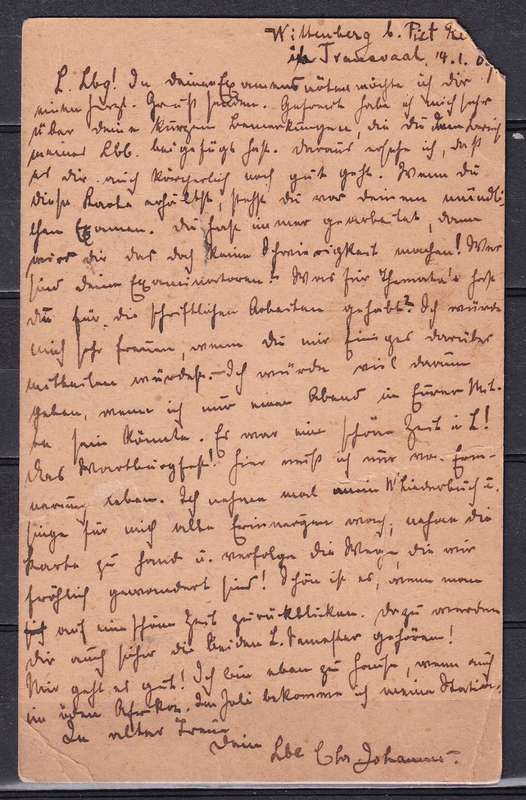 Wittenberg b. Piet
in Transvaal, 14.1.0
L. Lbg! In deinen Examensnöten möchte ich dir
einen herzl. Gruß senden. Gefreut habe ich mich sehr
über deine kurzen Bemerkungen, die du dem Bericht
meines Lbb. beigefügt hast. Daraus ersehe ich, daß
es dir auch körperlich noch gut geht. Wenn du
diese Karte erhältst, stehst du vor deinem mündli-
chen Examen. Du hast immer gearbeitet, dann
wird dir das doch keine Schwierigkeit machen! Wer
sind deine Examinatoren? Was für Themata hast
du für die schriftlichen Arbeiten gehabt? Ich würde
mich sehr freuen, wenn du mir Einiges darüber
mitteilen würdest. – Ich würde viel darum
geben, wenn ich nur einen Abend in Eurer Mit-
te sein könnte. Es war eine schöne Zeit i. L!
Das Wartburgfest! Hier muß ich nur von Erin-
nerung leben. Ich nehme mal mein Liederbuch u.
singe für mich alte Erinnerungen wach, nehme die
Karte zu Hand u. verfolge die Wege, die wir
fröhlich gewandert sind! Schön ist es, wenn man
auf eine schöne Zeit zurückblicken. Dazu werden
dir auch sicher die beiden L. Semester gehören!
Mir geht es gut! Ich bin eben zu Hause, wenn auch
im öden Afrika. Im Juli bekomme ich meine Station.
In alter Treue
Dein Lbb Chr. Johannes.